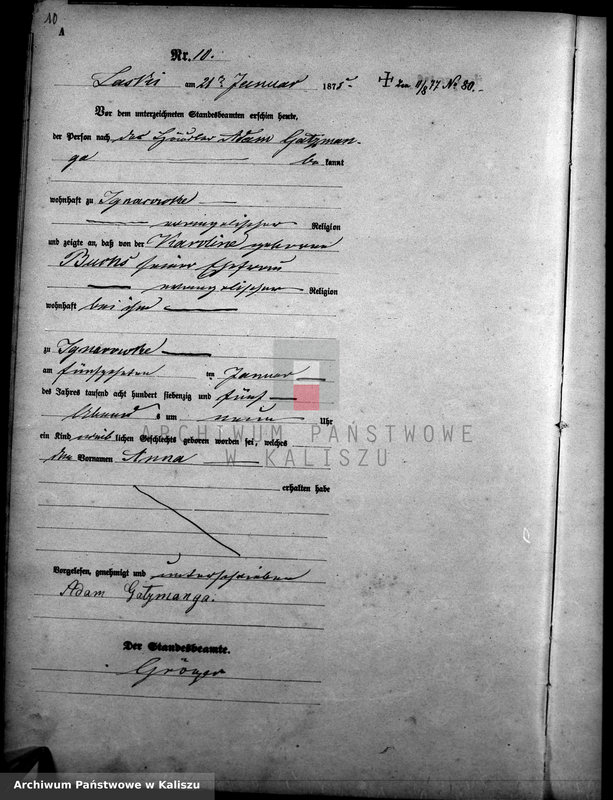 10
A
Nr. 10.
Laski am 21ten Januar 1875
+ den 11/8 77 No 30.-
Vor dem unterzeichneten Standesbeamten erschien heute,
der Person nach der Häusler Adam Gatzman-
ga bekannt
wohnhaft zu Ignacowke
evangelischer Religion
und zeigte an, daß von der Karoline geborene
Buchs seiner Ehefrau
evangelischer Religion
wohnhaft bei ihm
zu Ignacowke
am fünfzehnten ten Januar
des Jahres tausend acht hundert siebenzig und fünf
Abend s um neun Uhr
ein Kind weiblichen Geschlechts geboren worden sei, welches
den Vornamen Anna
erhalten habe
Vorgelesen, genehmigt und unterschrieben
Adam Gatzmanga.
Der Standesbeamte.
ARCHIWUM PAŃSTWOWE
W KALISZU
Archiwum Państwowe w Kaliszu